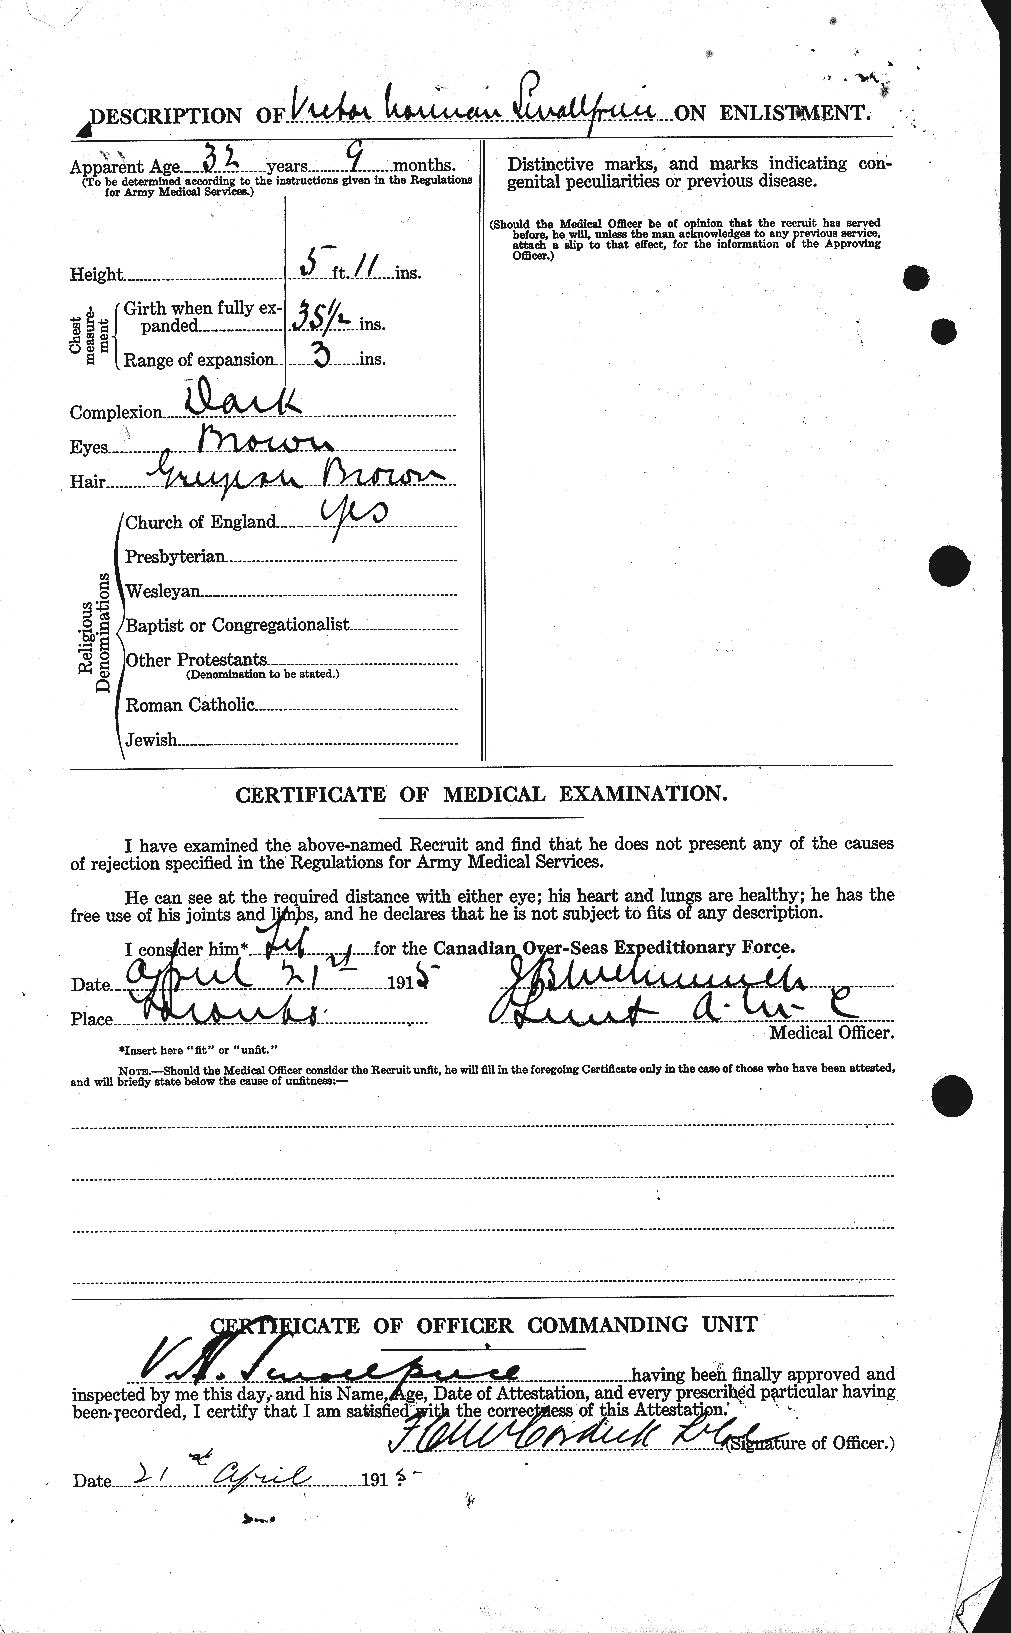 DESCRIPTION OF Victor Norman ON ENLISTMENT.
Apparent Age 32 years 9 months.
(To be determined according to the instructions given in the Regulations
for Army Medical Services.)
Height 5 ft. 11 ins.
Chest measure-ment
Girth when fully ex-
panded 35 1/2 ins.
Range of expansion 3 ins.
Complexion Dark
Eyes Brown
Hair Greyish Brown
Religious Denominations
Church of England Yes
Presbyterian
Wesleyan
Baptist or Congregationalist
Other Protestants
(Denomination to be stated.)
Roman Catholic
Jewish
Distinctive marks, and marks indicating con-
genital peculiarities or previous disease.
(Should the Medical Officer be of opinion that the recruit has served
before, he will, unless the man acknowledges to any previous service,
attach a slip to that effect, for the information of the Approving
Officer.)
CERTIFICATE OF MEDICAL EXAMINATION.
I have examined the above-named Recruit and find that he does not present any of the causes
of rejection specified in the Regulations for Army Medical Services.
He can see at the required distance with either eye; his heart and lungs are healthy; he has the
free use of his joints and limbs, and he declares that he is not subject to fits of any description.
I consider him* Fit for the Canadian Over-Seas Expeditionary Force.
Date April 21st 1915
Place Toronto.
Lieut A.M.C
Medical Officer.
*Insert here "fit" or "unfit."
NOTE.—Should the Medical Officer consider the Recruit unfit, he will fill in the foregoing Certificate only in the case of those who have been attested,
and will briefly state below the cause of unfitness:—
CERTIFICATE OF OFFICER COMMANDING UNIT
V. N. having been finally approved and
inspected by me this day, and his Name, Age, Date of Attestation, and every prescribed particular having
been recorded, I certify that I am satisfied with the correctness of this Attestation.
(Signature of Officer.)
Date 21st April 1915